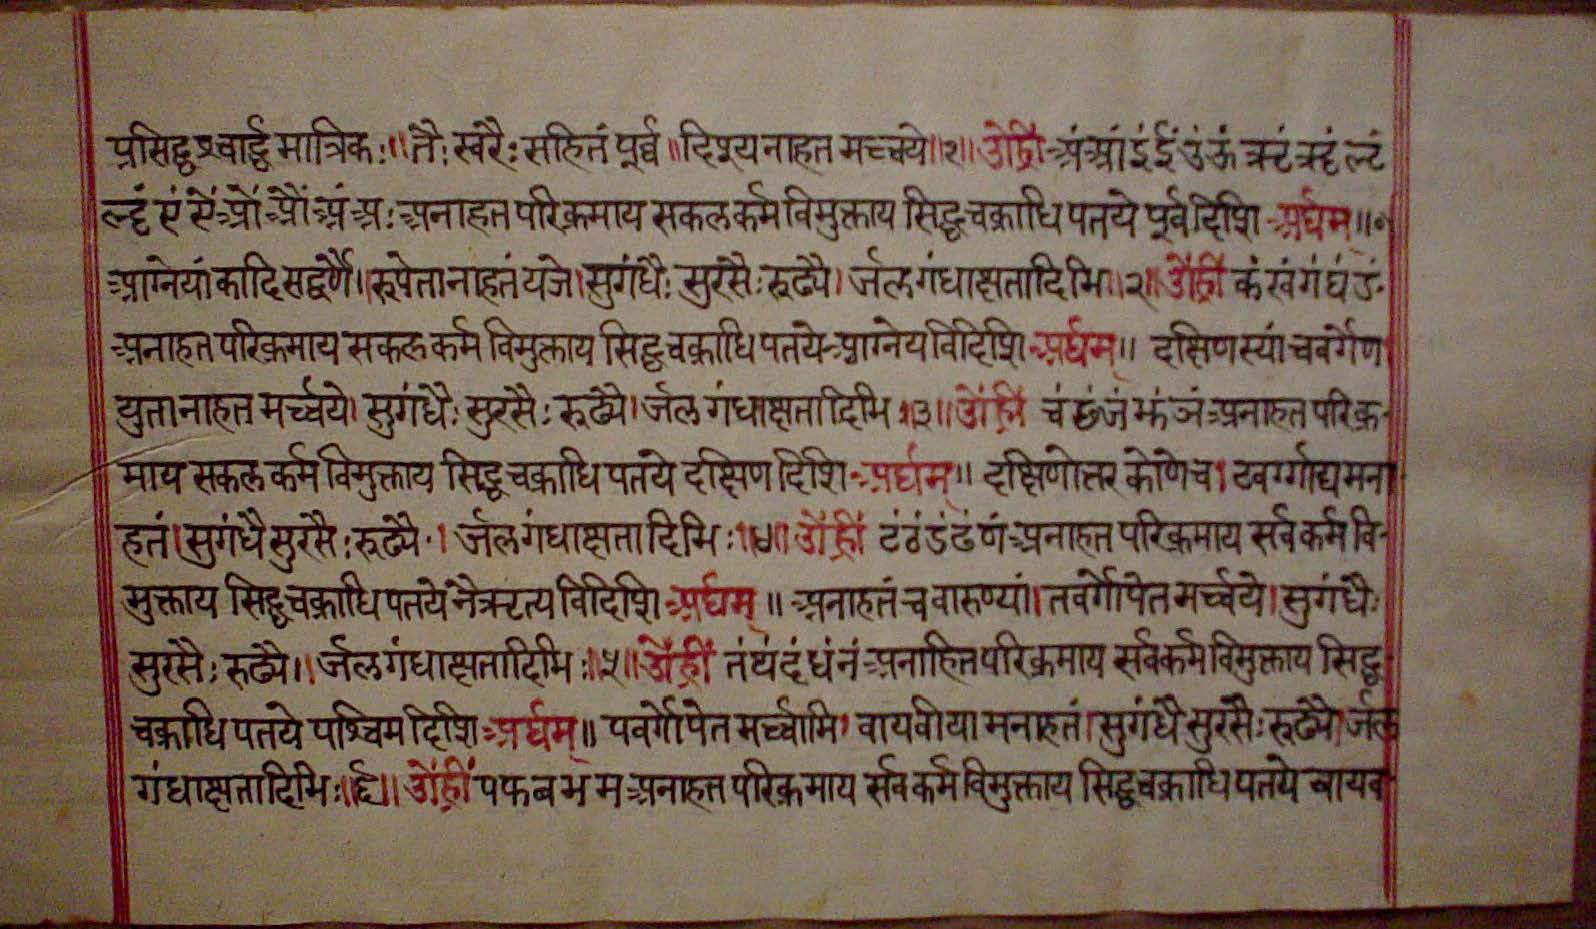 प्रसिद्धश्चार्द्ध मात्रिकः॥ तैः स्वरैः सहितं पूर्व्व॥ दिश्यनाहत मर्च्चये॥१॥ ॐह्रीं अंआंइंईंउंऊंऋंॠंऌं
ॡंएंऐंओंऔंअंअः अनाहत परिक्रमाय सकलकर्म विमुक्ताय सिद्धचक्राधि पतये पूर्वदिशि अर्घम्॥१
आग्नेयां कादि सद्वर्णै। रुपेतानाहतं यजे। सुगंधैः सुरसैः रूढ्यै। र्जलगंधाक्षतादिभि॥२॥ ॐह्रीं कं खं गं घं ङं
अनाहत परिक्रमाय सकलकर्म विमुक्ताय सिद्धचक्राधि पतये आग्नेय विदिशि अर्घम्॥ दक्षिणस्यां चवर्गेण
युतानाहत मर्च्चये। सुगंधैः सुरसैः रूढ्यै। र्जलगंधाक्षतादिभि॥३॥ ॐह्रीं चं छं जं झं ञं अनाहत परिक्र
माय सकल कर्म विमुक्ताय सिद्धचक्राधि पतये दक्षिण दिशि अर्घम्॥ दक्षिणोत्तर कोणे च। टवर्ग्गाद्यमना
हतं। सुगंधै सुरसैः रूढ्यै। र्जलगंधाक्षतादिभिः॥४॥ ॐह्रीं टं ठं डं ढं णं अनाहत परिक्रमाय सर्वकर्म वि
मुक्ताय सिद्धचक्राधि पतये नैऋत्य विदिशि अर्घम्॥ अनाहतं च वारुण्यां। तवर्गोपेत मर्च्चये। सुगंधै
सुरसैः रूढ्यै॥ र्जलगंधाक्षतादिभिः॥५॥ ॐह्रीं तं थं दं धं नं अनाहित परिक्रमाय सर्वकर्म विमुक्ताय सिद्ध
चक्राधि पतये पश्चिम दिशि अर्घम्॥ पवर्गोपेत मर्च्चामि। वायवीया मनाहतं। सुगंधै सुरसैः रूढ्यै। र्जल
गंधाक्षतादिभिः॥६॥ ॐह्रीं प फ ब भ म अनाहत परिक्रमाय सर्वकर्म विमुक्ताय सिद्धचक्राधि पतये वायव